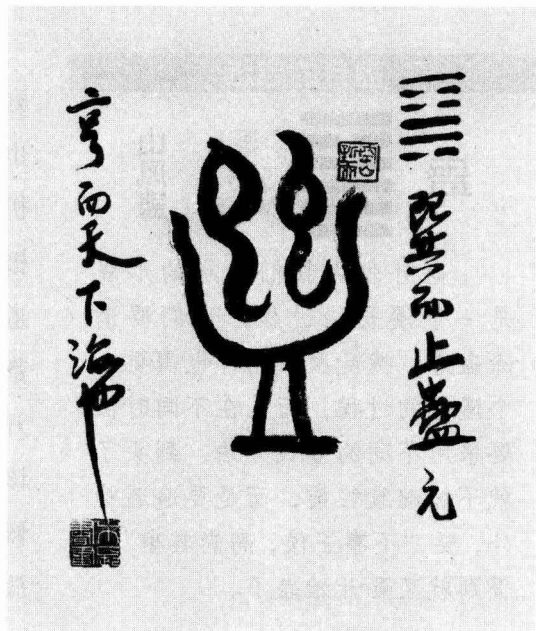 巽而止蠱元
蠱
亨而天下治也